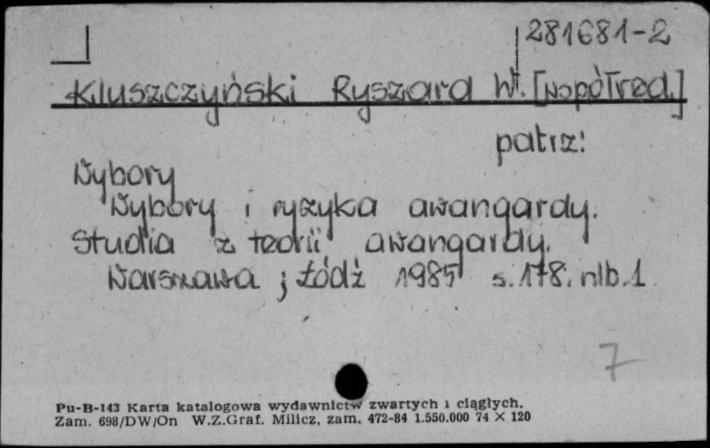 281681-2
Kluszczyński Ryszard W. [współred.]
patrz:
Wybory
Wybory i ryzyka awangardy.
Studia z teorii awangardy.
Warszawa ; Łódź 1985 s. 178, nlb. 1
7
Pu-B-143 Karta katalogowa wydawnictw zwartych i ciągłych.
Zam. 698/DW/On W.Z.Graf. Milicz, zam. 472-84 1.550.000 74 × 120